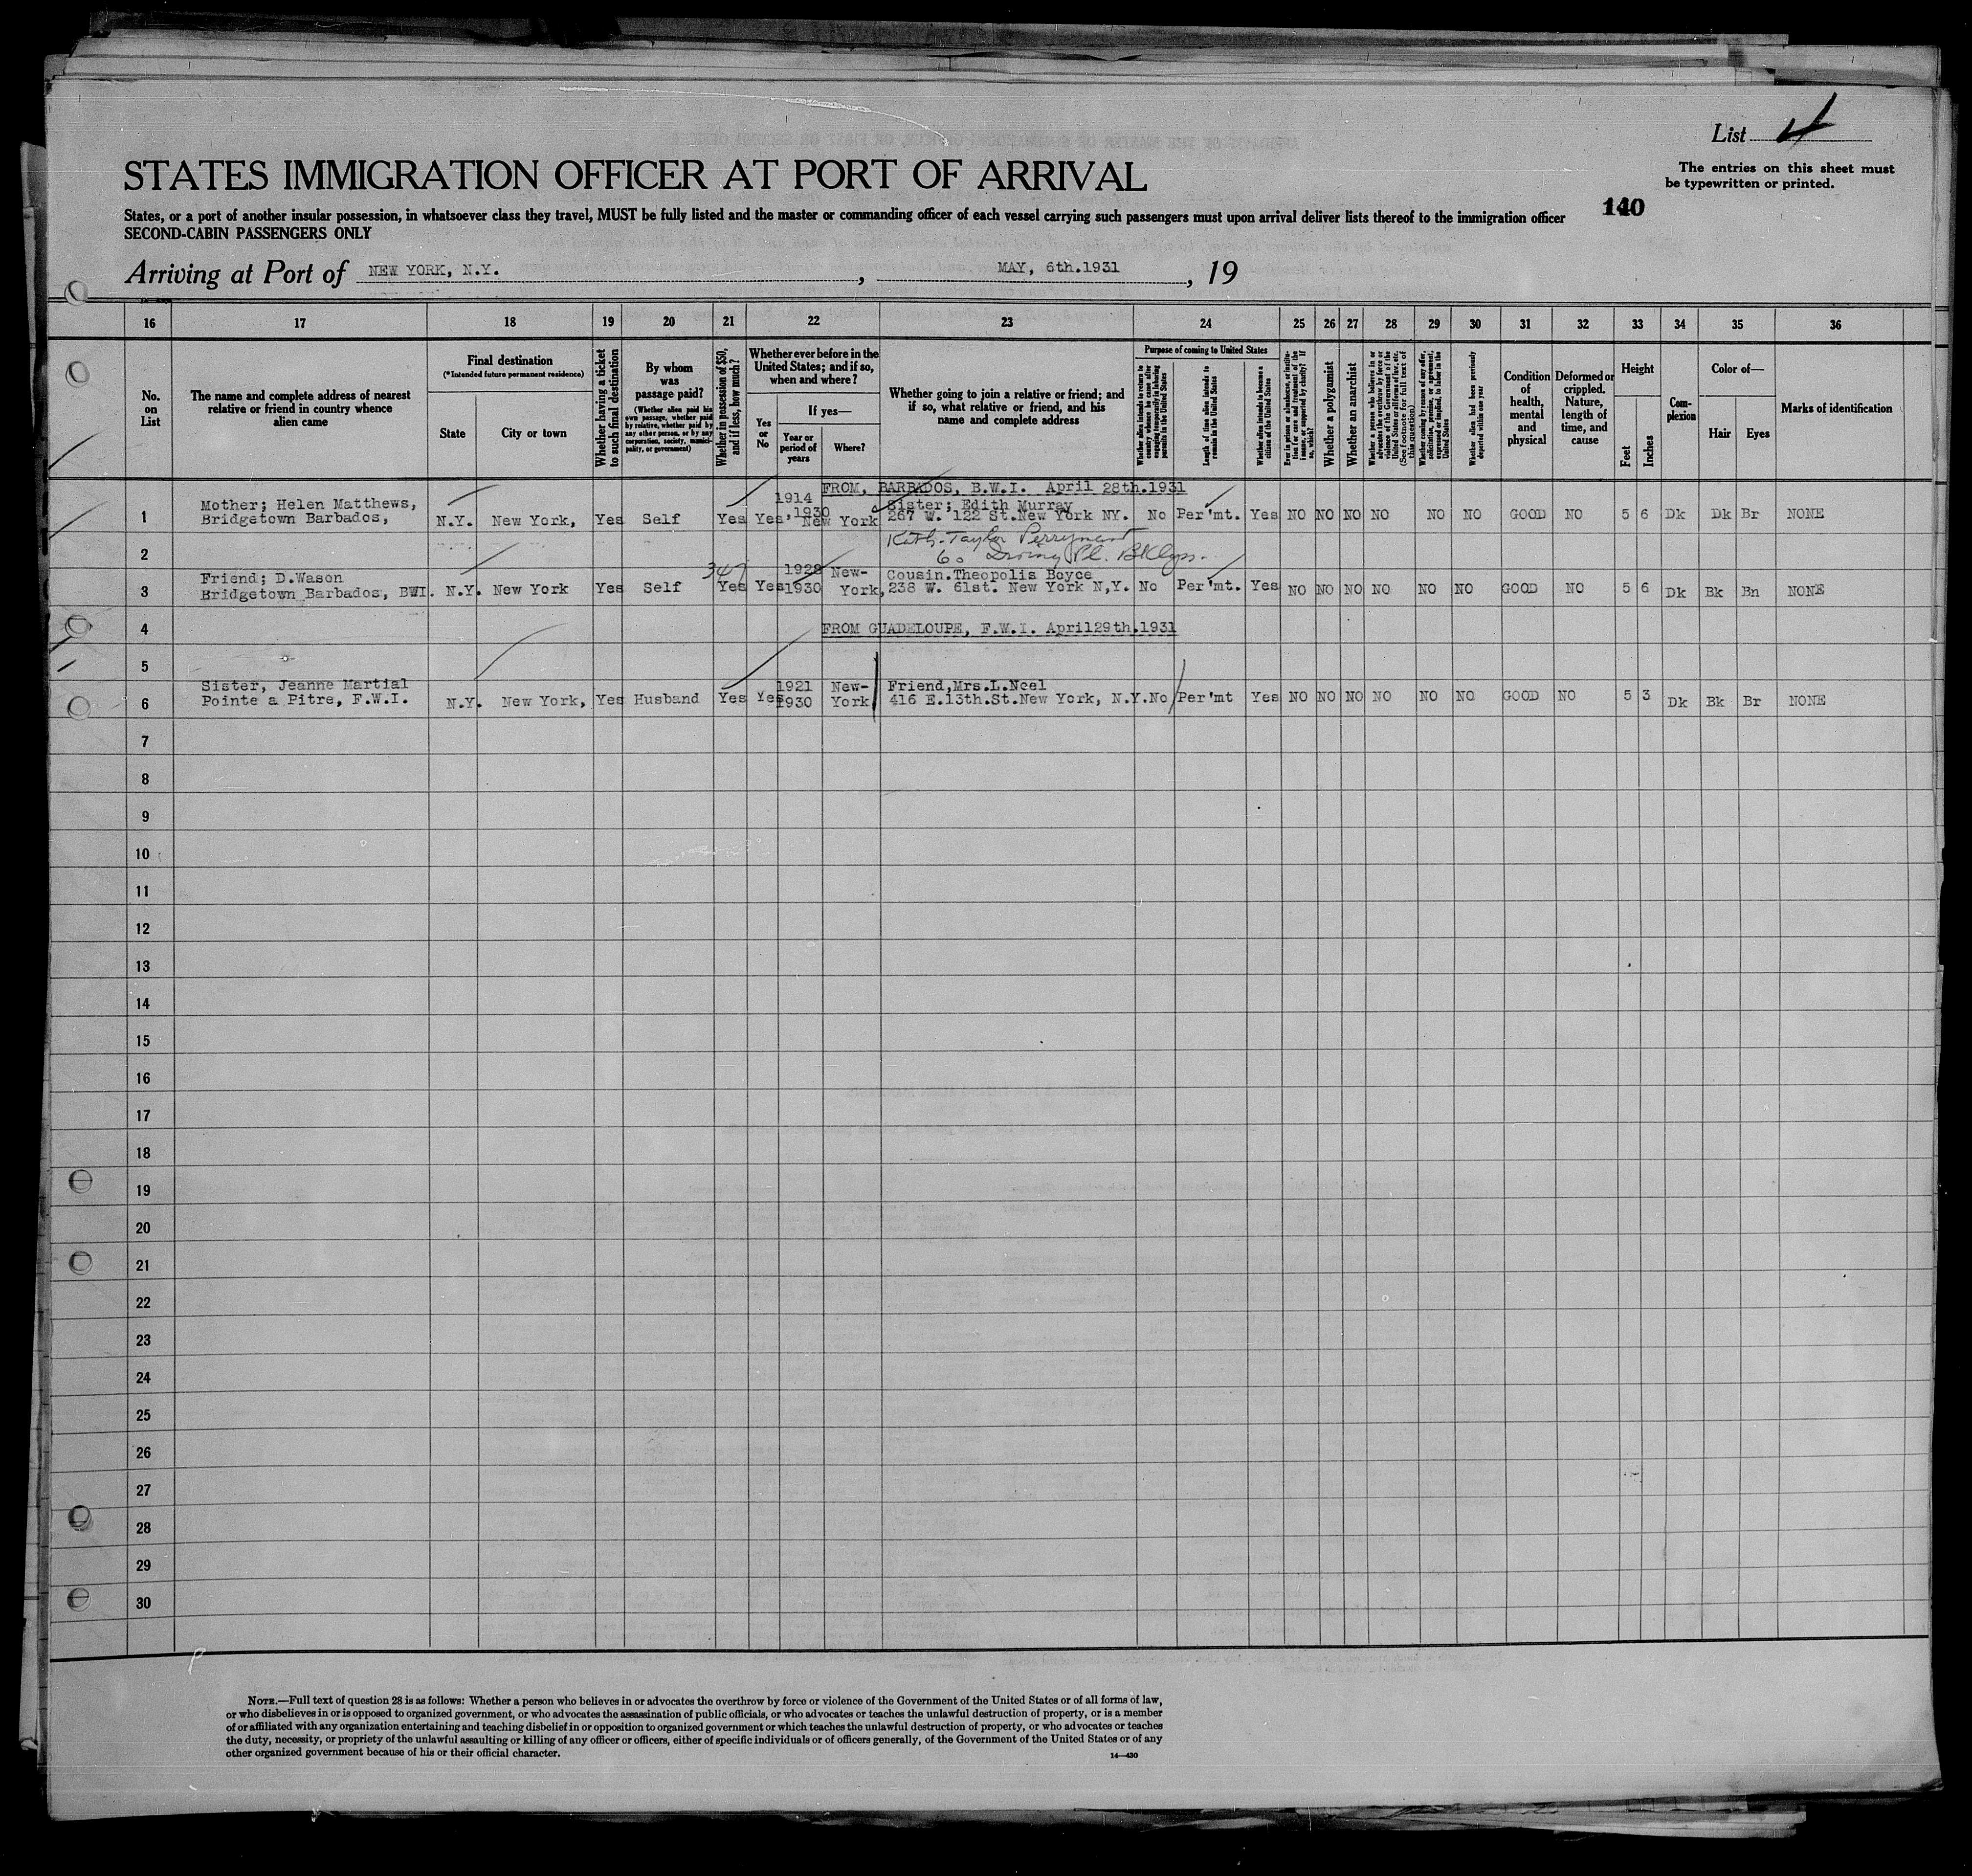 List 4
The entries on this sheet must
be typewritten or printed.
STATES IMMIGRATION OFFICER AT PORT OF ARRIVAL
140
States, or a port of another insular possession, in whatsoever class they travel, MUST be fully listed and the master or commanding officer of each vessel carrying such passengers must upon arrival deliver lists thereof to the immigration officer
SECOND-CABIN PASSENGERS ONLY
Arriving at Port of NEW YORK, N.Y. , MAY, 6th.1931 , 19
16 17 18 19 20 21 22 23 24 25 26 27 28 29 30 31 32 33 34 35 36
No. on List
The name and complete address of nearest relative or friend in country whence alien came
Final destination
(*Intended future permanent residence)
State
City or town
Whether having a ticket to such final destination
By whom was passage paid?
(Whether alien paid his own passage, whether paid by relative, whether paid by any other person, or by any corporation, society, municipality, or government)
Whether in possession of $50, and if less, how much?
Whether ever before in the United States; and if so, when and where?
Yes or No
If yes—
Year or period of years
Where?
Whether going to join a relative or friend; and if so, what relative or friend, and his name and complete address
Purpose of coming to United States
Whether alien intends to return to country whence he came after engaging temporarily in laboring pursuits in the United States
Length of time alien intends to remain in the United States
Whether alien intends to become a citizen of the United States
Ever in prison or almshouse, or institution for care and treatment of the insane, or supported by charity? If so, which?
Whether a polygamist
Whether an anarchist
Whether a person who believes in or advocates the overthrow by force or violence of the Government of the United States or all forms of law, etc. (See footnote for full text of this question)
Whether coming by reason of any offer, solicitation, promise, or agreement, expressed or implied, to labor in the United States
Whether alien had been previously deported within one year
Condition of health, mental and physical
Deformed or crippled. Nature, length of time, and cause
Height
Feet
Inches
Complexion
Color of—
Hair
Eyes
Marks of identification
FROM, BARBADOS, B.W.I. April 28th.1931
1 Mother; Helen Matthews, Bridgetown Barbados, N.Y. New York, Yes Self Yes Yes 1914, 1930 New York Sister; Edith Murray 267 W. 122 St.New York NY. No Per'mt. Yes NO NO NO NO NO NO GOOD NO 5 6 Dk Dk Br NONE
2 Taylor Perryment
60 Irving Pl. BKlyn.
3 Friend; D.Wason Bridgetown Barbados, BWI. N.Y. New York Yes Self 347 Yes Yes 1928 1930 New-York, Cousin.Theopolis Boyce 238 W. 61st. New York N,Y. No Per'mt. Yes NO NO NO NO NO NO GOOD NO 5 6 Dk Bk Bn NONE
4 FROM GUADELOUPE, F.W.I. April29th.1931
5
6 Sister, Jeanne Martial Pointe a Pitre, F.W.I. N.Y. New York, Yes Husband Yes Yes 1921 1930 New-York Friend,Mrs.L.Neel 416 E.13th.St.New York, N.Y. No Per'mt Yes NO NO NO NO NO NO GOOD NO 5 3 Dk Bk Br NONE
7
8
9
10
11
12
13
14
15
16
17
18
19
20
21
22
23
24
25
26
27
28
29
30
NOTE.—Full text of question 28 is as follows: Whether a person who believes in or advocates the overthrow by force or violence of the Government of the United States or of all forms of law,
or who disbelieves in or is opposed to organized government, or who advocates the assassination of public officials, or who advocates or teaches the unlawful destruction of property, or is a member
of or affiliated with any organization entertaining and teaching disbelief in or opposition to organized government or which teaches the unlawful destruction of property, or who advocates or teaches
the duty, necessity, or propriety of the unlawful assaulting or killing of any officer or officers, either of specific individuals or of officers generally, of the Government of the United States or of any
other organized government because of his or their official character.
14—430